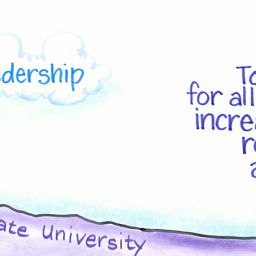 dership
To
for all
increa
re
a
ate University